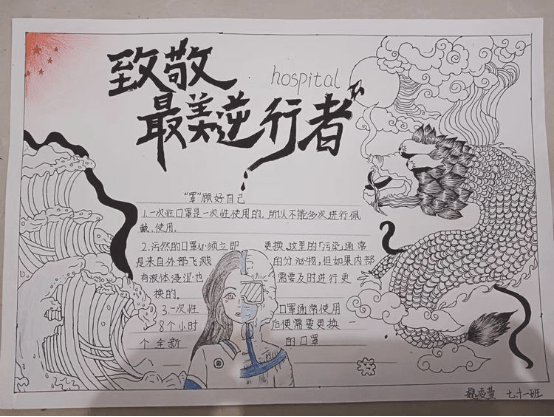 致敬
hospital
最美逆行者
"罩"顾好自己
1.一次性口罩是一次性使用的,所以不能多次进行佩
戴、使用。
2.污染的口罩必须立即 更换,这里的污染,通常
是来自外部飞溅 的分泌物,但如果内部
有液体浸湿也 需要及时进行更
换的。
3.一次性 口罩通常使用
8个小时 后便需要更换一
个全新 的口罩
七十一班